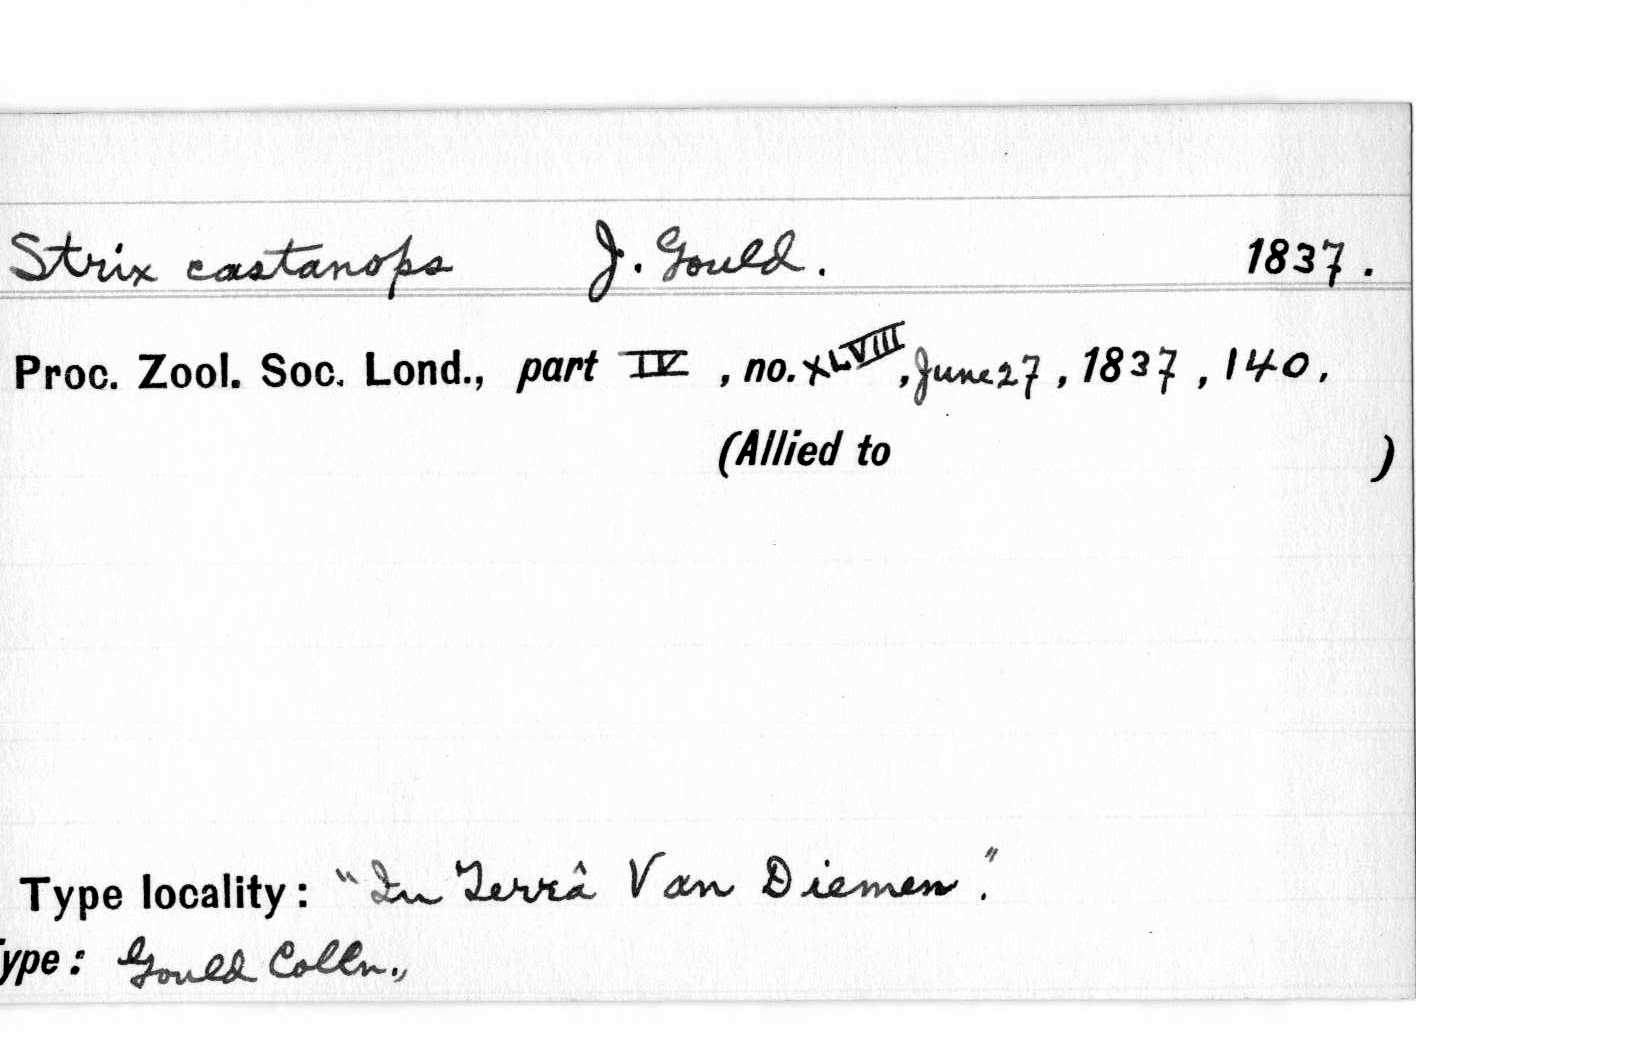 Strix castanops J. Gould. 1837.
Proc. Zool. Soc. Lond., part IV, no. XLVIII, June 27, 1837, 140.
(Allied to )
Type locality: "In Terrâ Van Diemen".
ype: Gould Colln.,